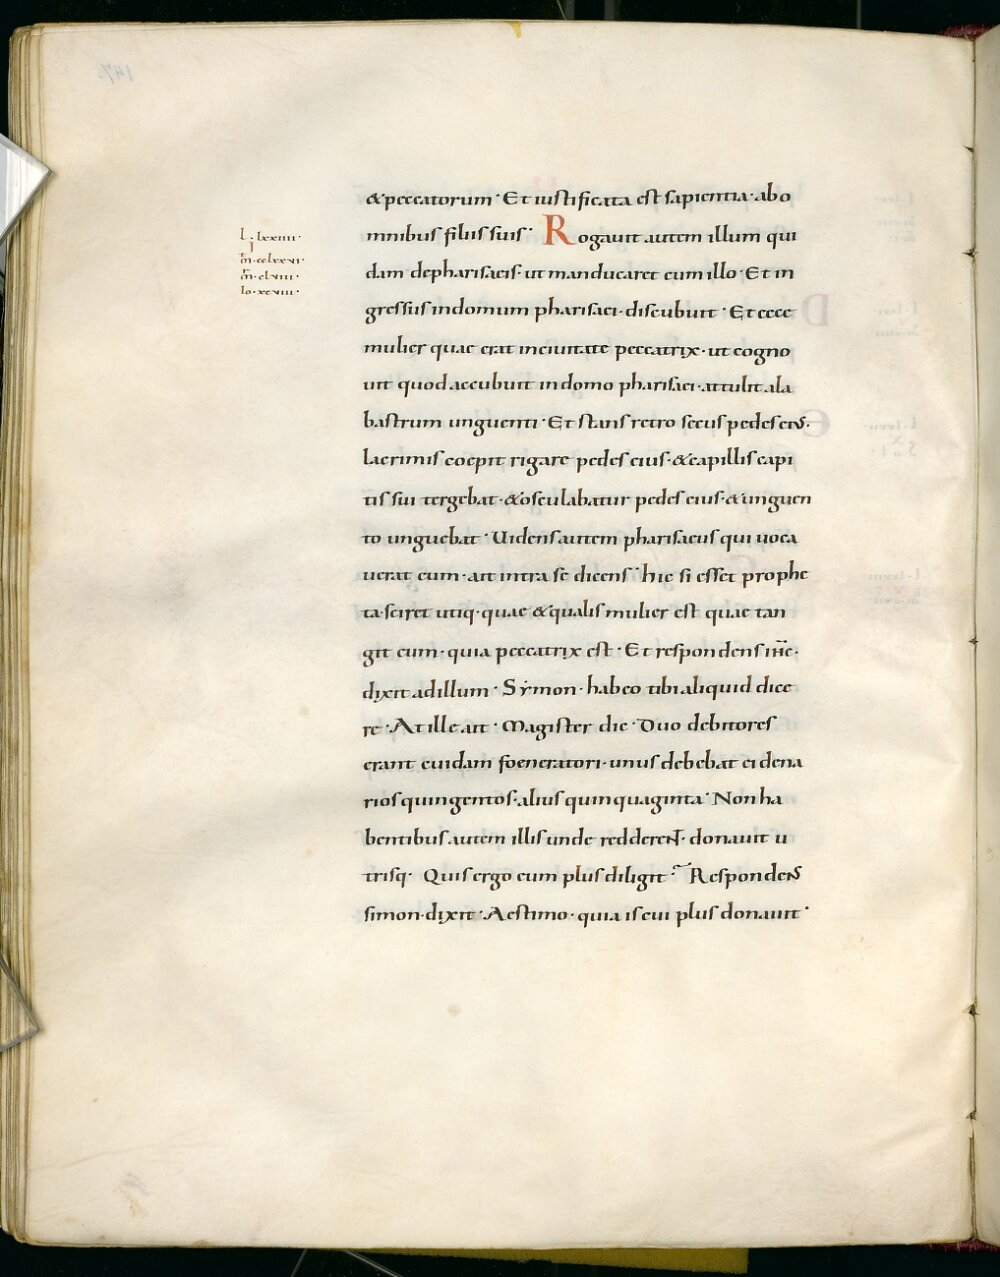 L. lxxiiii.
I
m̄.cclxxvi.
m̄.clviii.
Io.xcviii.
&peccatorum· Et iustificata est sapientia· abo
mnibus filiis suis· Rogauit autem illum qui
dam depharisaeis· ut manducaret cum illo· Et in
gressus indomum pharisaei· discubuit· Et ecce
mulier quae erat inciuitate peccatrix· ut cogno
uit quod accubuit indomo pharisaei· attulit ala
bastrum unguenti· Et stans retro secus pedes eius·
lacrimis coepit rigare pedes eius· &capillis capi
tis sui tergebat· &osculabatur pedes eius· &unguen
to unguebat· Uidens autem pharisaeus qui uoca
uerat eum· ait intra se dicens· hic si esset prophe
ta· sciret utiq· quae &qualis mulier est quae tan
git eum· quia peccatrix est· Et respondens ihc̄·
dixit adillum· Sẏmon· habeo tibi aliquid dice
re· At ille ait· Magister dic· Duo debitores
erant cuidam foeneratori· unus debebat ei dena
rios quingentos· alius quinquaginta· Non ha
bentibus autem illis unde redderent· donauit u
trisq· Quis ergo eum plus diligit· Respondens
simon· dixit· Aestimo· quia is cui plus donauit·